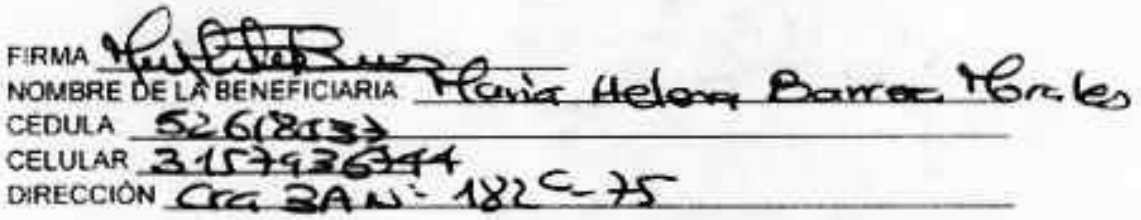 FIRMA
NOMBRE DE LA BENEFICIARIA Maria Helena Barrera Morales
CEDULA
CELULAR 3157936744
DIRECCIÓN Cra 3A N- 182 C-75